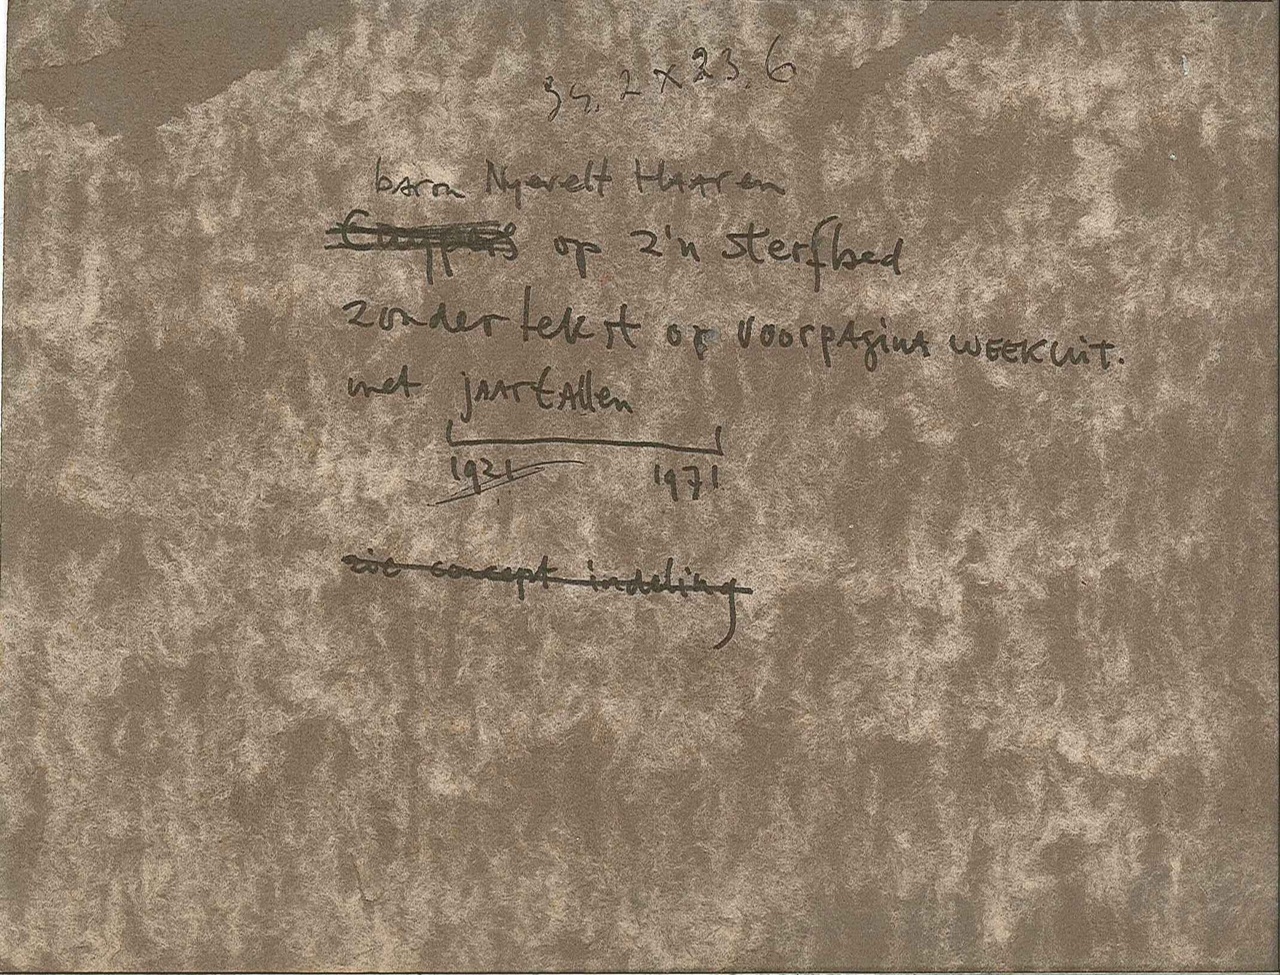 2 x 23,6
baron Nyevelt Haaren
Cuypers op z'n sterfbed
zonder tekst op voorpagina WEEKUIT.
met jaartallen
1921 1971
zie concept indeling